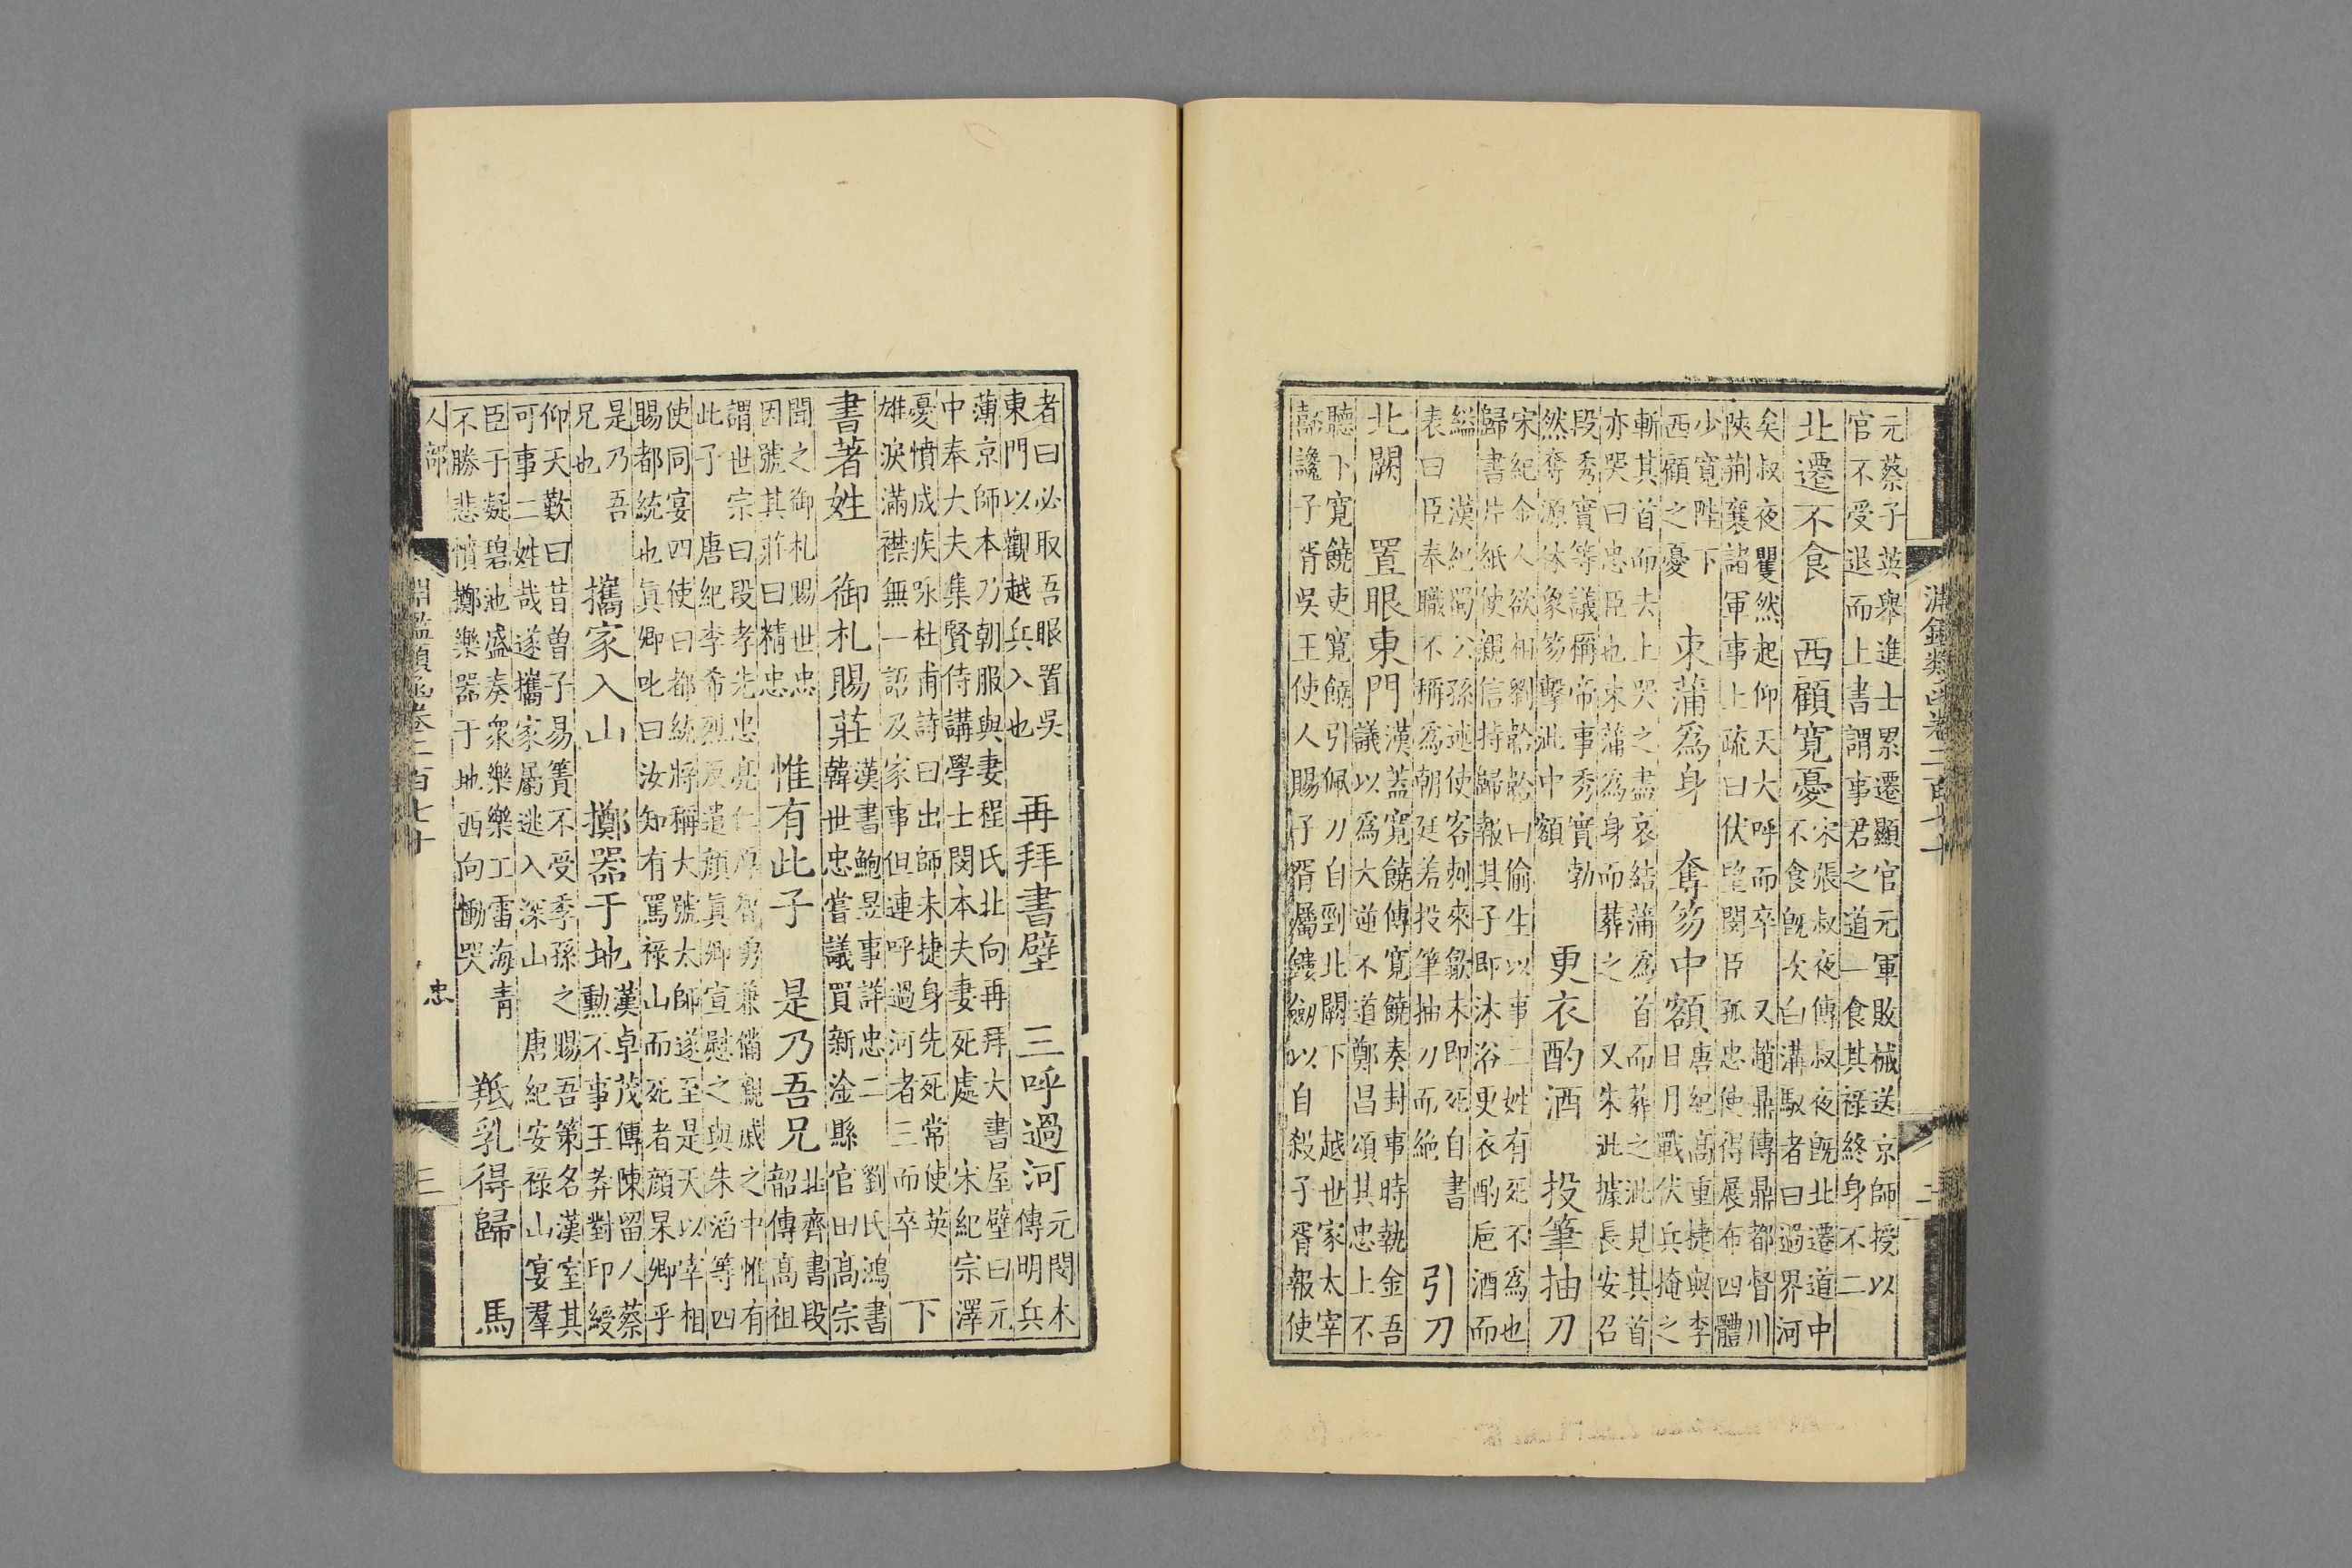 淵鑑類函卷二百七十 二
元蔡子英舉進士累遷顯官元軍敗械送京師授以
官不受退而上書謂事君之道一食其祿終身不二
北遷不食 西顧寬憂
宋張叔夜傳叔夜既北遷道中
不食既次白溝馭者曰過界河
矣叔夜矍然起仰天大呼而卒 又趙鼎傳鼎都督川
陝荆襄諸軍事上疏曰伏望閔臣孤忠使得展布四體
少寬陛下
西顧之憂
束蒲爲身 奪笏中額
唐紀高重捷與李
日月戰伏兵掩之
斬其首而去上哭之盡哀結蒲爲首而葬之泚見其首
亦哭曰忠臣也束蒲爲身而葬之 又朱泚據長安召
段秀實等議稱帝事秀實勃
然奪源休象笏擊泚中額
更衣酌酒 投筆抽刀
宋紀金人欲相劉韐韐曰偷生以事二姓有死不爲也
歸書片紙使親信持歸報其子即沐浴更衣酌巵酒而
縊 漢紀蜀公孫述使客刺來歙未即死自書
表曰臣奉職不稱爲朝廷羞投筆抽刀而絶
引刀
北闕 置眼東門
漢蓋寬饒傳寬饒奏封事時執金吾
議以爲大逆不道鄭昌頌其忠上不
聽下寬饒吏寬饒引佩刀自剄北闕下 越世家太宰
嚭讒子胥吳王使人賜子胥屬鏤劍以自殺子胥報使
者曰必取吾眼置吳
東門以觀越兵入也
再拜書壁 三呼過河
元閔本
傳明兵
薄京師本乃朝服與妻程氏北向再拜大書屋壁曰元
中奉大夫集賢侍講學士閔本夫妻死處 宋紀宗澤
憂憤成疾咏杜甫詩曰出師未捷身先死常使英
雄淚滿襟無一語及家事但連呼過河者三而卒
下
書著姓 御札賜莊
漢書鮑昱事詳忠二 劉氏鴻書
韓世忠嘗議買新淦縣官田高宗
聞之御札賜世忠
因號其莊曰精忠
惟有此子 是乃吾兄
北齊書段
韶傳高祖
謂世宗曰段孝先忠亮仁厚智勇兼備親戚之中惟有
此子 唐紀李希烈反遣顏眞卿宣慰之與朱滔等四
使同宴四使曰都統將稱大號太師遂至是天以宰相
賜都統也眞卿叱曰汝知有罵祿山而死者顏杲卿乎
是乃吾
兄也
攜家入山 擲器于地
漢卓茂傳陳留人蔡
勳不事王莽對印綬
仰天歎曰昔曾子易簀不受季孫之賜吾策名漢室其
可事二姓哉遂攜家屬逃入深山 唐紀安祿山宴羣
臣于凝碧池盛奏衆樂樂工雷海青
不勝悲憤擲樂器于地西向慟哭
羝乳得歸 馬
人部 忠
淵鑑類函卷二百七十 三